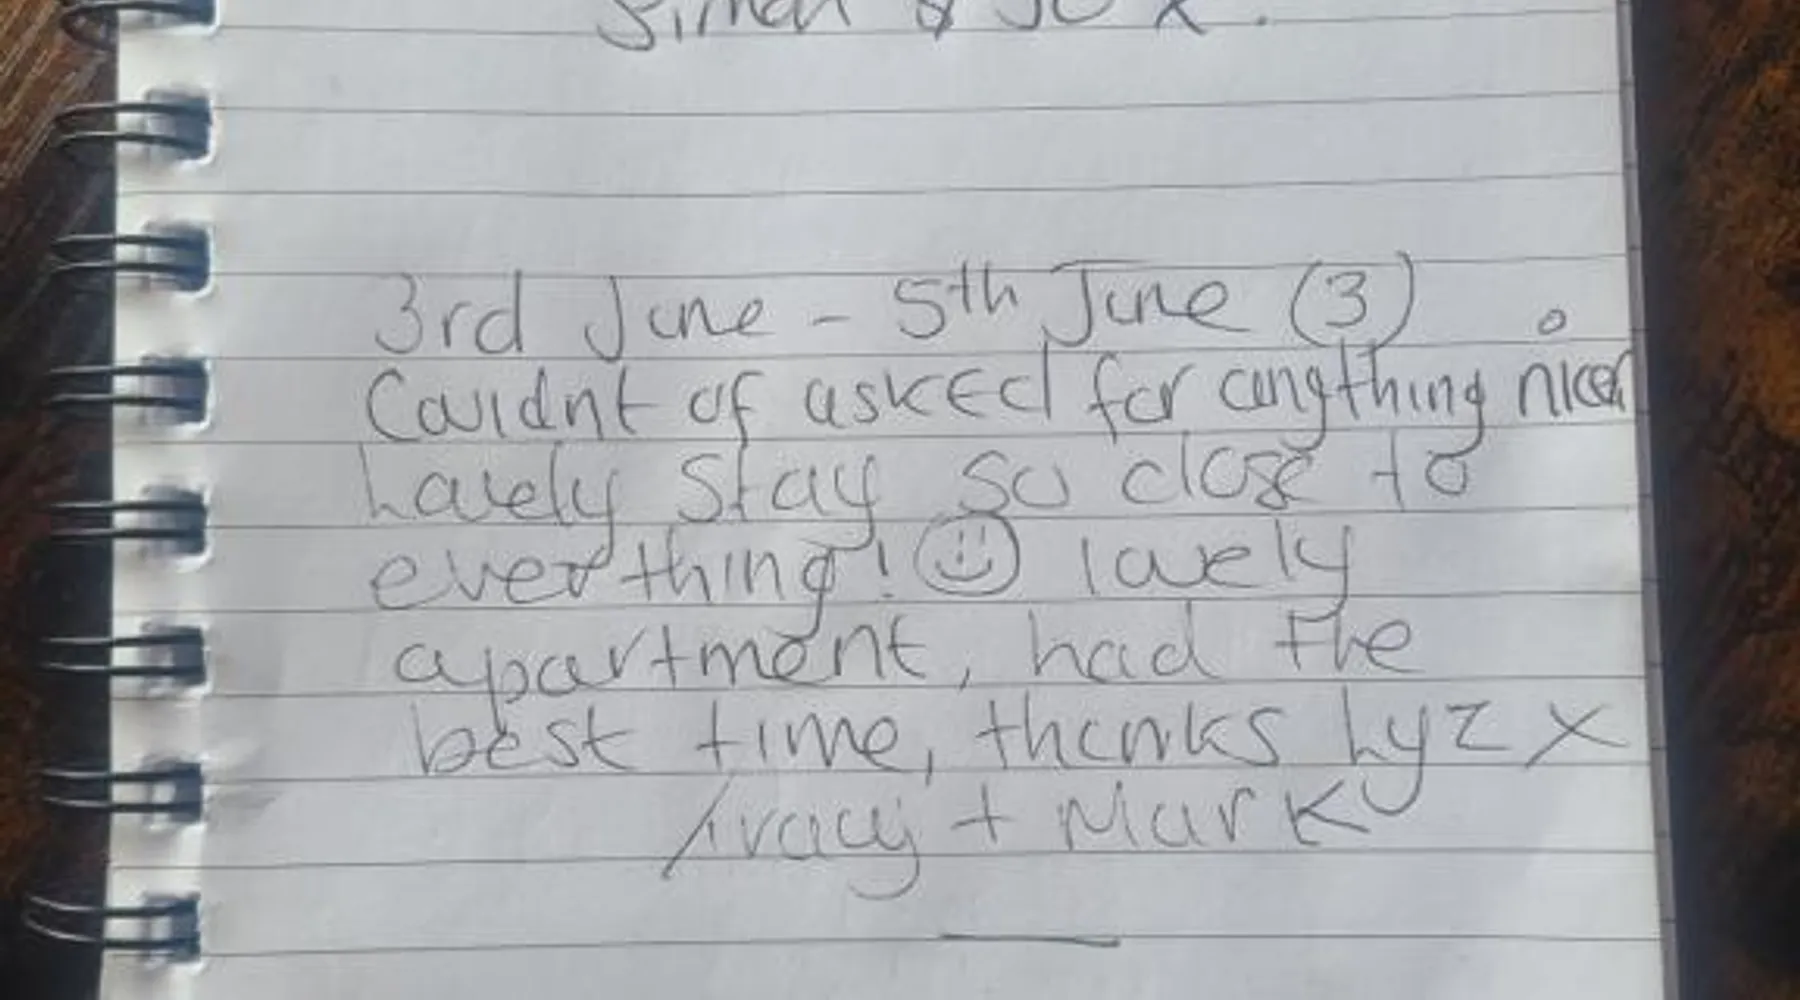 Simon & Jo x.
3rd June - 5th June (3)
Couldnt of asked for anything nicer
Lovely stay so close to
everything! ☺ lovely
apartment, had the
best time, thanks Lyz x
Tracy + Mark